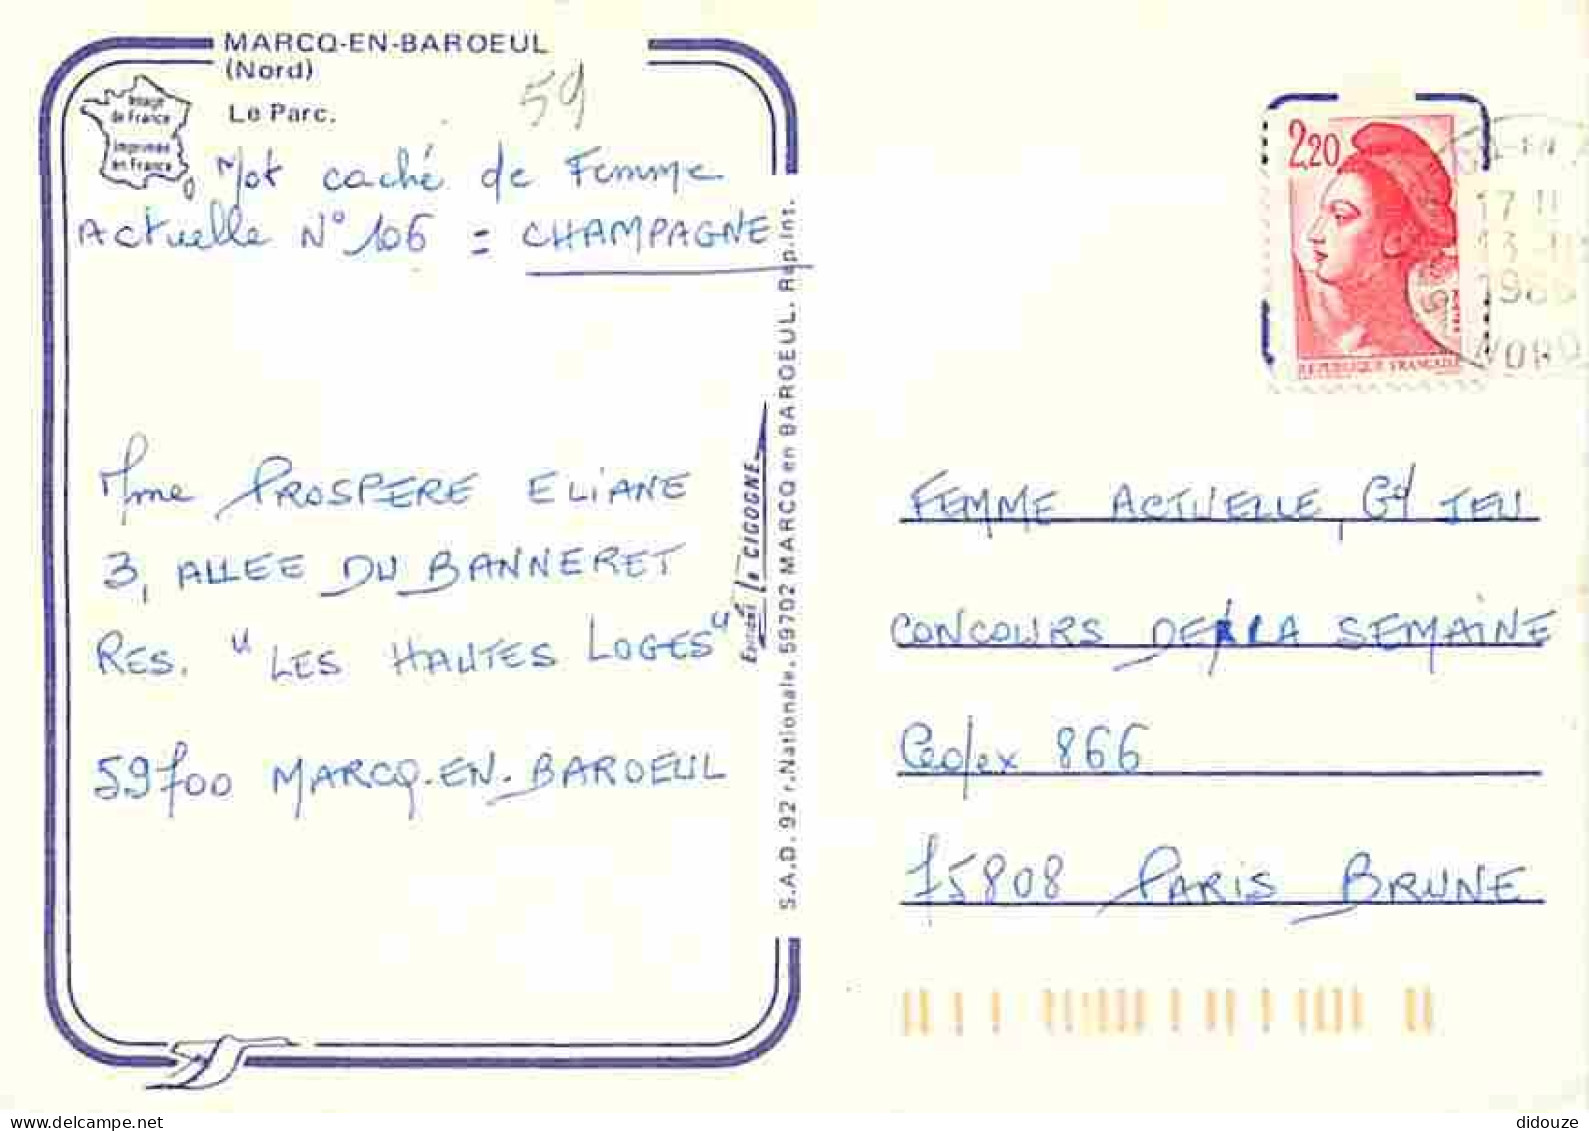 MARCQ-EN-BAROEUL
(Nord)
Le Parc.
59
Image
de France
Imprimée
en France
Mot caché de Femme
Actuelle N° 106 = CHAMPAGNE
Mme PROSPERE ELIANE
3, ALLEE DU BANNERET
RES. "LES HAUTES LOGES"
59700 MARCQ-EN-BAROEUL
Editions la CIGOGNE
S.A.D. 92 r. Nationale. 59702 MARCQ en BAROEUL. Rep. Int.
2,20
REPUBLIQUE FRANCAISE
17 H
13 -10
1986
NORD
FEMME ACTUELLE, Gd JEU
CONCOURS DE LA SEMAINE
Cedex 866
75808 PARIS BRUNE
delcampe.net
didouze